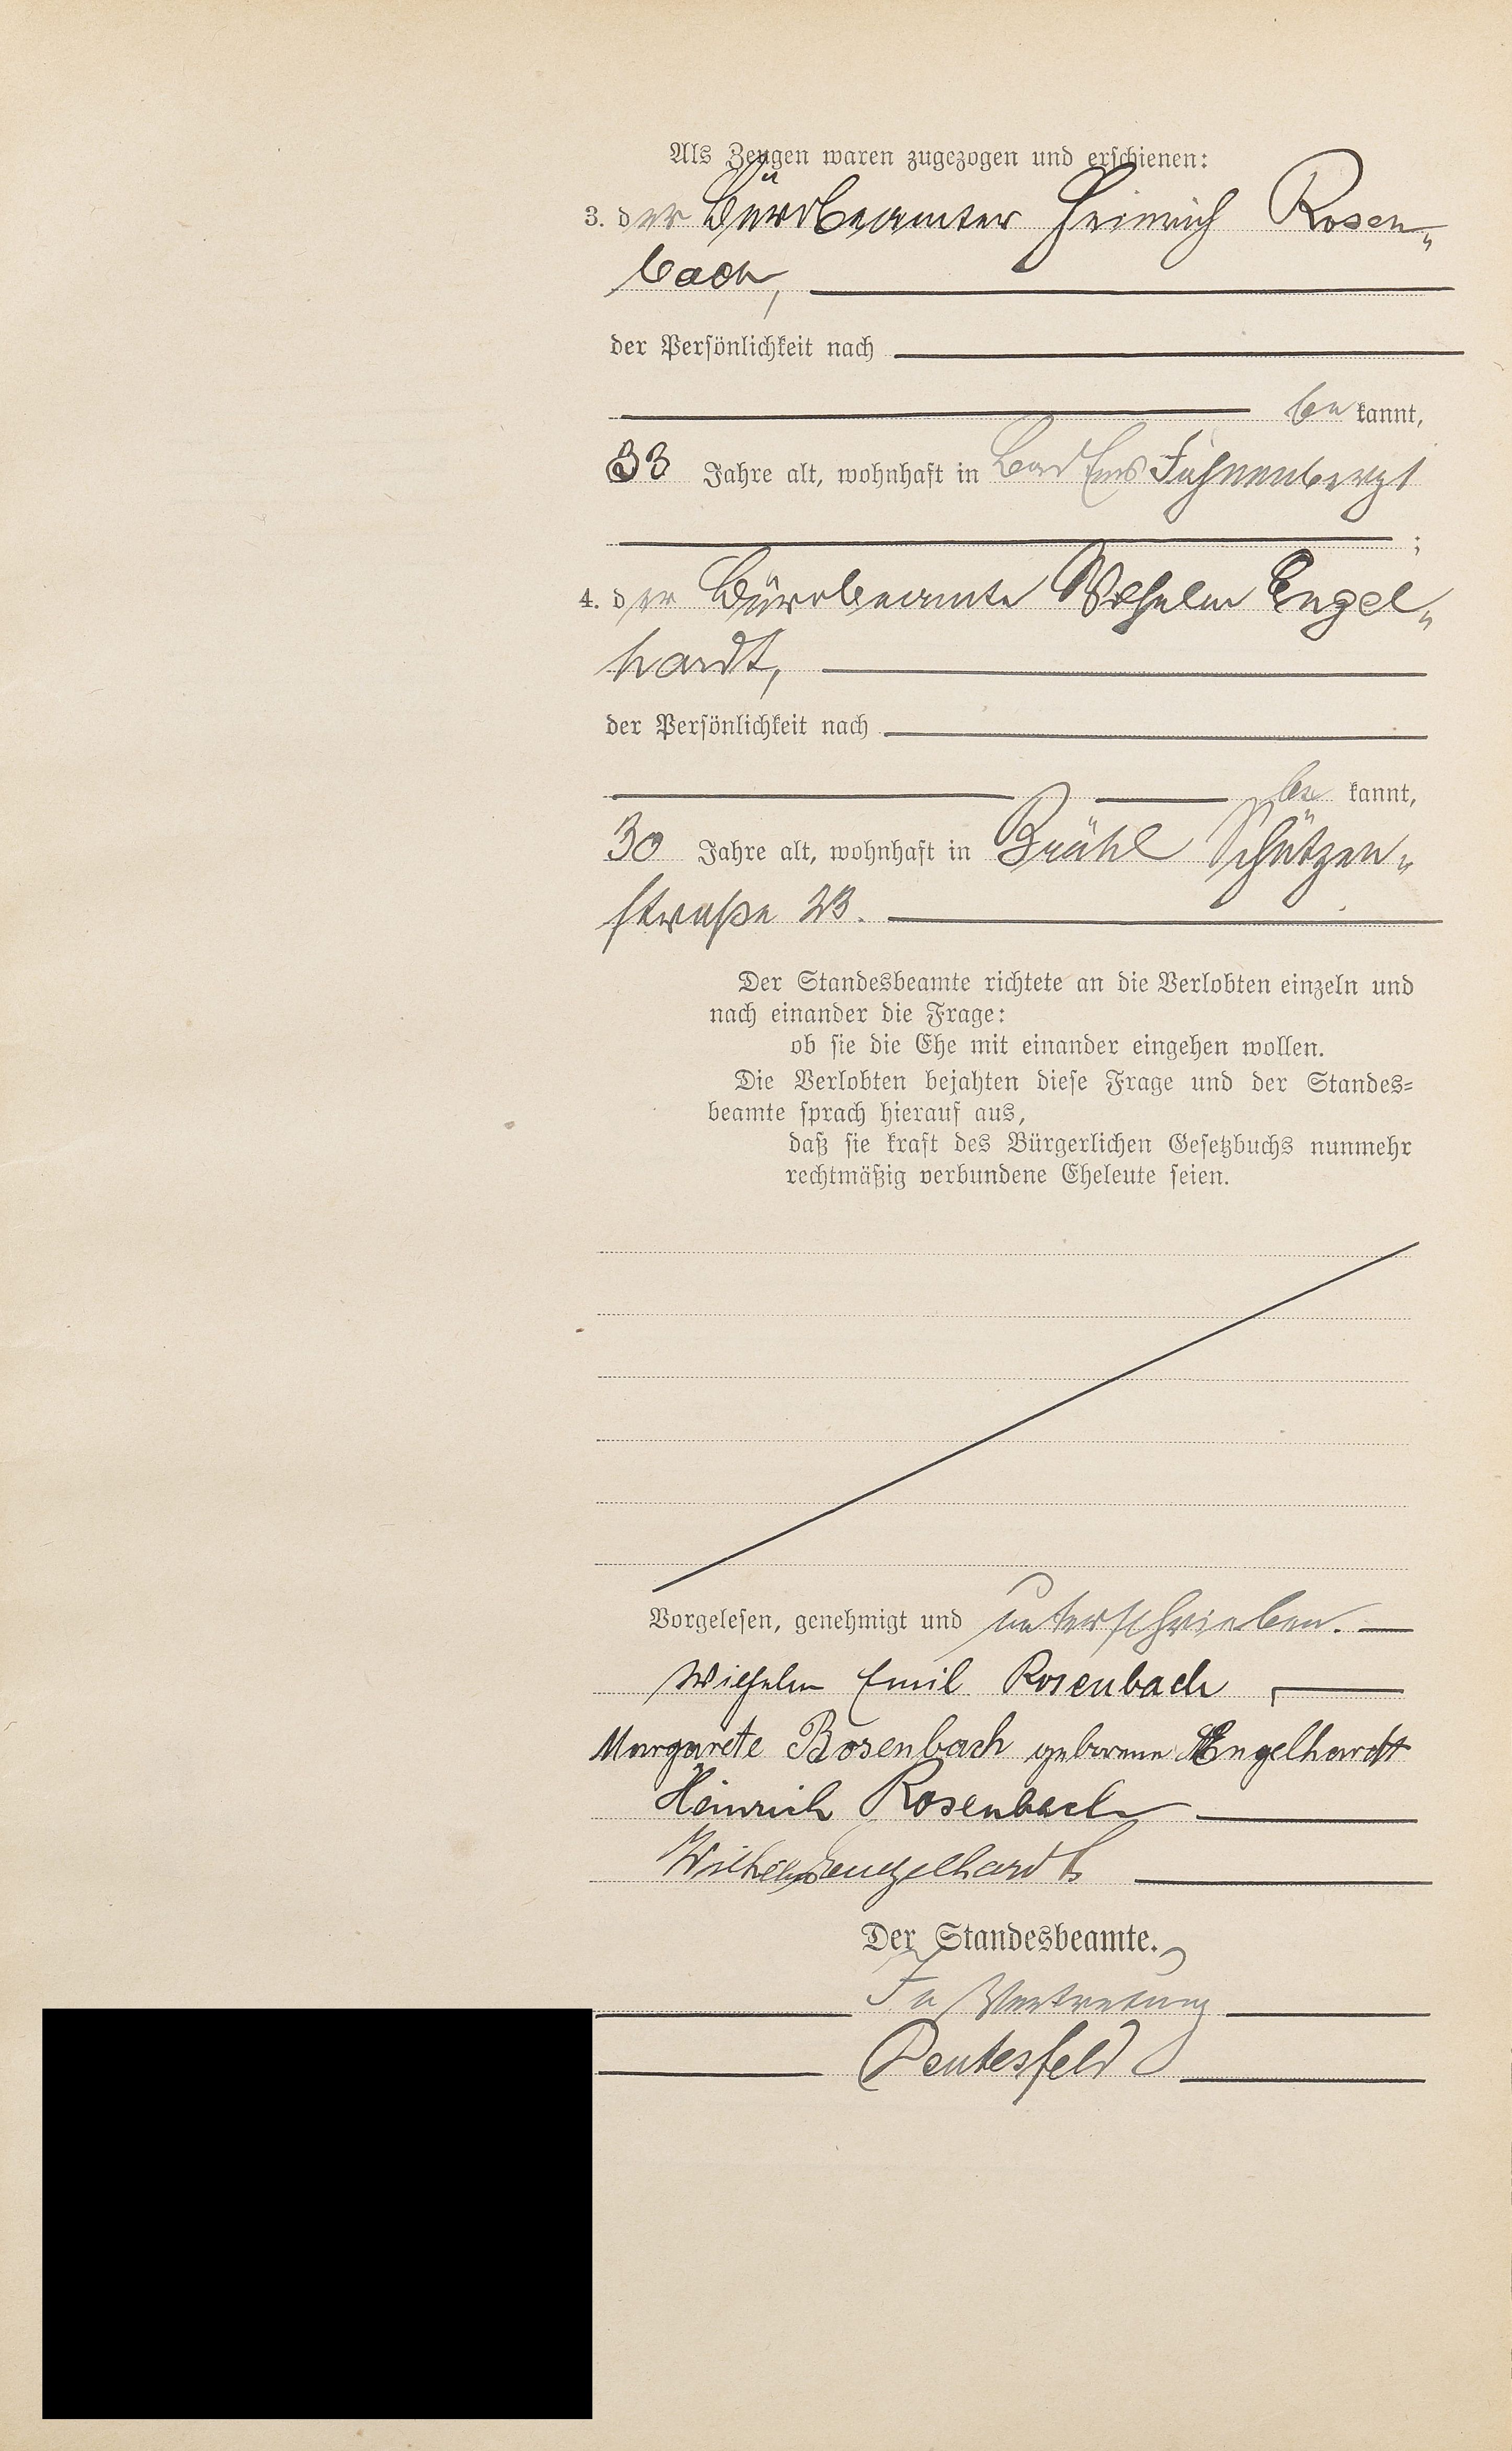 Als Zeugen waren zugezogen und erschienen:
3. der Bürobeamter Heinrich Rosen-
bach,
der Persönlichkeit nach
be kannt,
33 Jahre alt, wohnhaft in Bad Ems
;
4. der Bürobeamte Wilhelm Engel-
hardt,
der Persönlichkeit nach
be kannt,
30 Jahre alt, wohnhaft in Brühl Schützen-
straße 23.
Der Standesbeamte richtete an die Verlobten einzeln und
nach einander die Frage:
ob sie die Ehe mit einander eingehen wollen.
Die Verlobten bejahten diese Frage und der Standes-
beamte sprach hierauf aus,
daß sie kraft des Bürgerlichen Gesetzbuchs nunmehr
rechtmäßig verbundene Eheleute seien.
Vorgelesen, genehmigt und unterschrieben.
Wilhelm Emil Rosenbach
Margarete Rosenbach geborene Engelhardt
Heinrich Rosenbach
Wilhelm Engelhardt
Der Standesbeamte.
In Vertretung
Pentesfeld